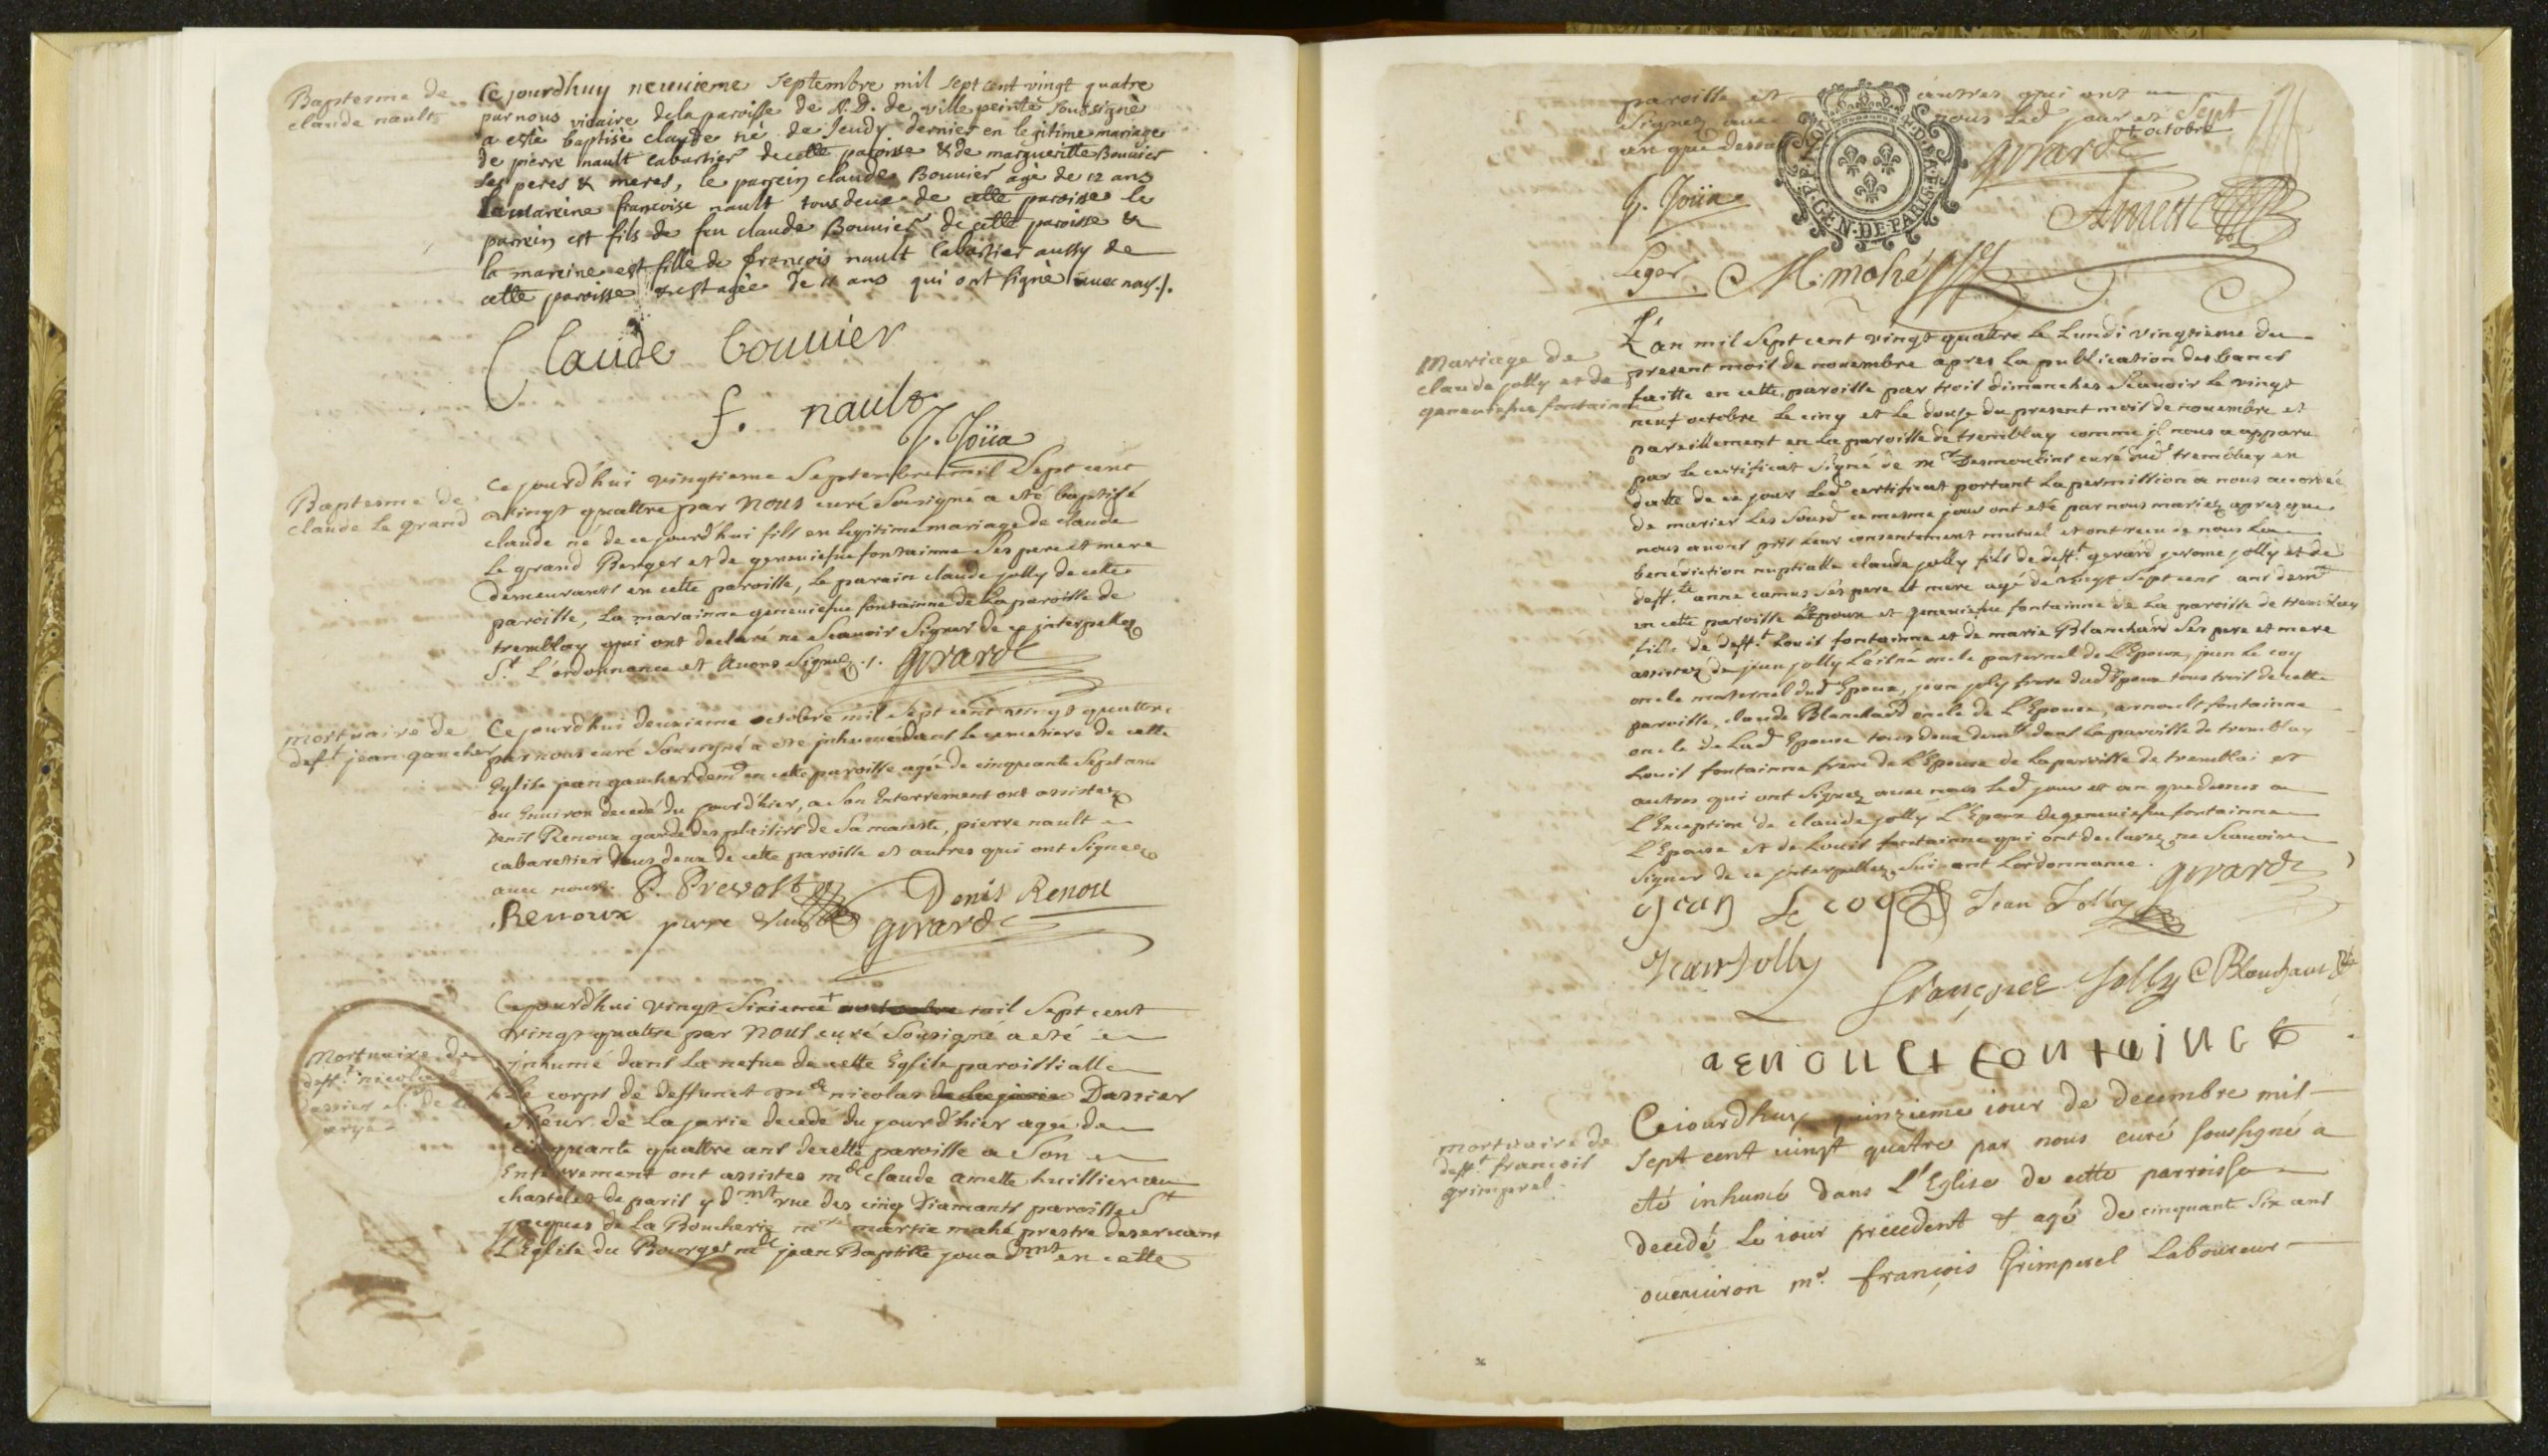 Baptesme de
claude nault
Cejourdhuy neuuieme septembre mil sept cent vingt quatre
par nous vicaire dela paroisse de N.D. de villepeinte soussigné
a esté baptisé claude né de Jeudy dernier en legitime mariage
de pierre nault cabartier decette paroisse & de margueritte Bouuier
ses peres & meres, le parrein claude Bouuier agé de 12 ans
la mareine francoise nault tous deux de cette paroisse le
parrein est fils de feu claude Bouuier de cette paroisse &
la mareine est fille de francois nault Cabartier aussy de
cette paroisse agée de 11 ans qui ont signé auec nous ./.
Claude bouuier
f. nault
J. Joüa
Baptesme de
claude le grand
Ce jourd'hui vingtieme Septembre mil Sept cent
vingt quattre par nous curé Sousigné a eté baptisé
claude né de ce jourd'hui fils en legitime mariage de claude
le grand Berger et de geneuiefue fontainne Ses pere et mere
demeurants en cette paroisse, le parein claude jolly de cette
paroisse, La marainne geneuiefue fontainne de La paroisse de
tremblay qui ont declaré ne Scauoir Signer de ce interpellez
St. L'ordonnance et Auons Signé ./. girard
mortuaire de
defft. jean gaucher
Ce jourd'hui deuxieme octobre mil Sept cent vingt quattre
par nous curé Sousigné a eté inhumé dans le cimetiere de cette
Eglise jean gaucher demt en cette paroisse agé de cinquante Sept ans
ou Enuiron decedé du jourd'hier, a Son Enterrement ont assistez
Denis Renoux garde des plaisirs de Sa majesté, pierre nault
cabaretier tous deux de cette paroisse et autres qui ont Signez
auec nous. P. Prevost Denis Renou
Renoux pierre nault girard
Mortuaire de
defft. nicolas
dassier sr. de la
jarye
Ce jourd'hui vingt Sixieme + octobre mil Sept cent
vingt quattre par nous curé Sousigné a eté
inhumé dans La nefue de cette Eglise paroissialle
Le corps de deffunct me nicolas de la jarie Dassier
Sieur de La jarie decedé du jourd'hier agé de
cinquante quattre ans de cette paroisse a Son
Enterrement ont assistes me claude amette huissier au
chastelet de paris y dmt rue des cinq Diamants paroisse St
jacques de La Boucherie me martin mahé prestre deseruant
L'Eglise du Bourget me jean Baptiste joua dmt en cette
paroisse et autres qui ont
Signez auec nous Led jour et Sept
an que dessus + octobre
girard
J. Joüa
Amette
GEN. DE PARIS
Leger M. mahé
Mariage de
claude jolly et de
geneuiefue fontainne
L'an mil Sept cent vingt quattre le Lundi vingtieme du
present mois de nouembre apres La publication des bancs
faitte en cette paroisse par trois dimanches Scauoir le vingt
neuf octobre le cinq et le douze du present mois de nouembre et
pareillement en La paroisse de tremblay comme il nous a apparu
par le certificat Signé de mr Desmoulins curé dud tremblay en
datte de ce jour Led certificat portant La permission a nous accordée
de marier Les Sousd ce mesme jour ont eté par nous mariez apres que
nous auons pris Leur consentement mutuel et ont receu de nous La
benediction nuptialle claude jolly fils de defft. gerard jerome jolly et de
defft.te anne camus Ses pere et mere agé de vingt Sept ans demt
en cette paroisse Epoux et geneuiefue fontainne de La paroisse de tremblay
fille de defft. Louis fontainne et de marie Blanchard Ses pere et mere
assistez de jean jolly L'aisné oncle paternel de L'Epoux, jean le coq
oncle maternel dud Epoux, jean joly frere dud Epoux tous trois de cette
paroisse, claude Blanchard oncle de L'Epouse, arnoult fontainne
oncle de Lad Epouse tous deux demt dans La paroisse de tremblay
Louis fontainne frere de L'Epouse de La paroisse de tremblai et
autres qui ont Signez auec nous Led jour et an que dessus a
L'Exception de claude jolly L'Epoux de geneuiefue fontainne
L'Epouse et de Louis fontainne qui ont declarez ne Scauoir
Signer de ce interpellez Suiuant Lordonnance. girard
jean Le coq Jean Jolly
Jean Jolly
françoies Jolly C Blanchard
arnoult fontainne
mortuaire de
defft. francois
grimperel
Ceiourdhuy quinzieme iour de decembre mil
Sept cent uingt quatre par nous curé soussigné a
eté inhumé dans L'Eglise de cette parroisse
decedé le iour precedent & agé de cinquante Six ans
ou enuiron mr. françois Grimperel Laboureur